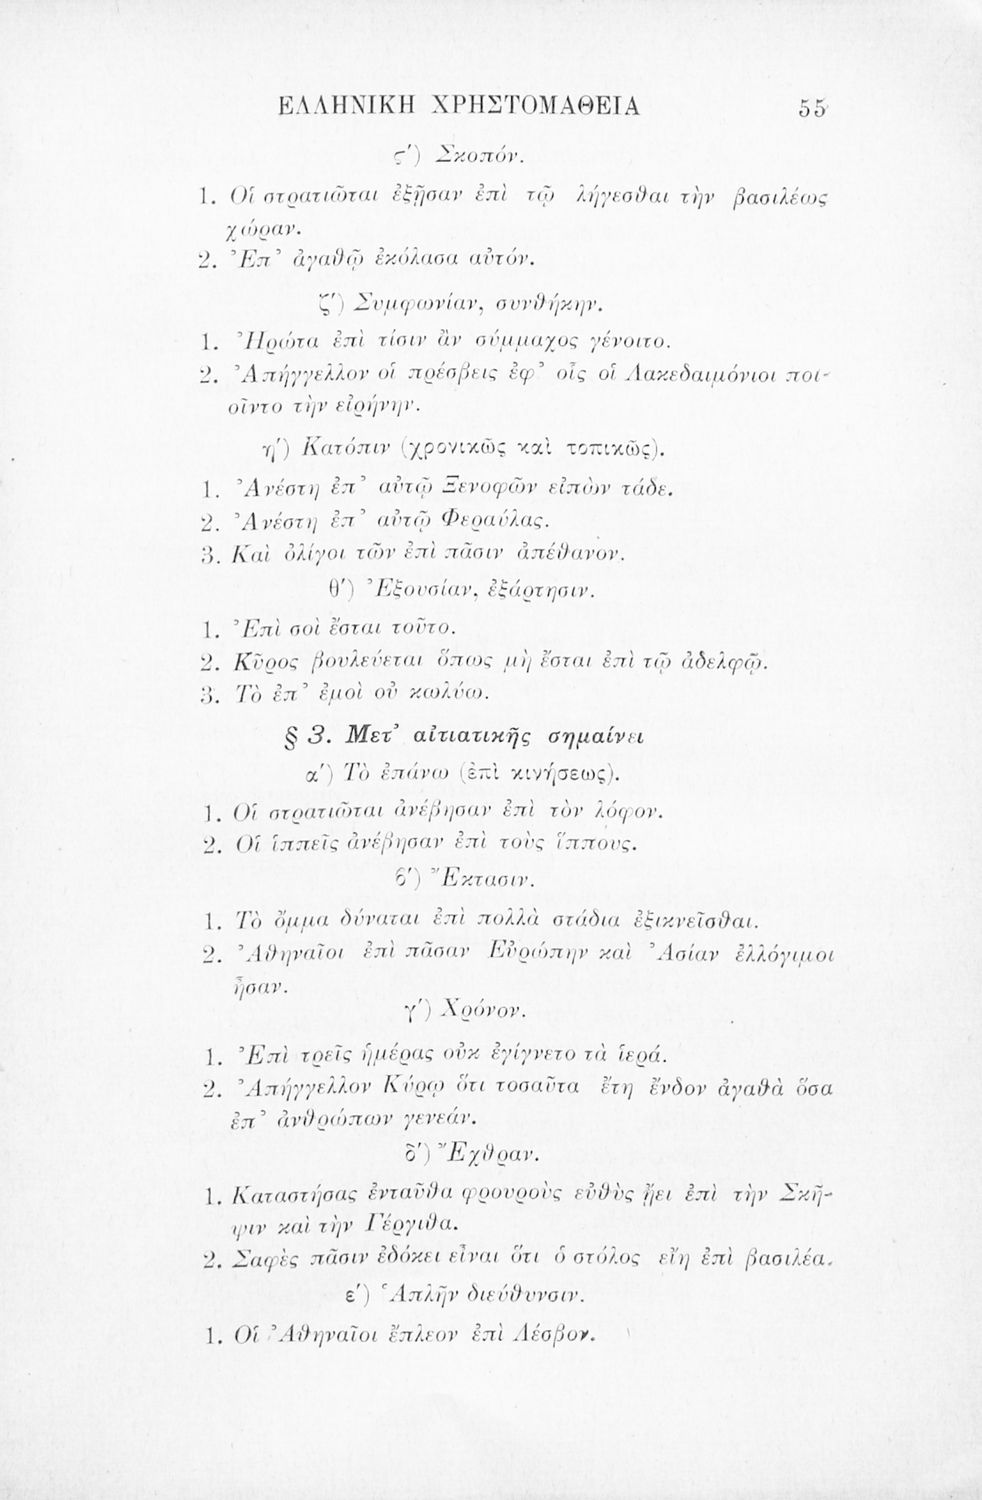 ΕΛΛΗΝΙΚΗ ΧΡΗΣΤΟΜΑΘΕΙΑ 55
ς') Σκοπόν.
1. Οἱ στρατιῶται ἐξῇσαν ἐπὶ τῷ λῄγεσθαι τὴν βασιλέως
χώραν.
2. Ἐπ’ ἀγαθῷ ἐκόλασα αὐτόν.
ζ') Συμφωνίαν, συνθήκην.
1. Ἠρώτα ἐπὶ τίσιν ἂν σύμμαχος γένοιτο.
2. Ἀπήγγελλον οἱ πρέσβεις ἐφ’ οἷς οἱ Λακεδαιμόνιοι ποι-
οῖντο τὴν εἰρήνην.
η') Κατόπιν (χρονικῶς καὶ τοπικῶς).
1. Ἀνέστη ἐπ’ αὐτῷ Ξενοφῶν εἰπὼν τάδε.
2. Ἀνέστη ἐπ’ αὐτῷ Φεραύλας.
3. Καὶ ὀλίγοι τῶν ἐπὶ πᾶσιν ἀπέθανον.
θ') Ἐξουσίαν, ἐξάρτησιν.
1. Ἐπὶ σοὶ ἔσται τοῦτο.
2. Κῦρος βουλεύεται ὅπως μὴ ἔσται ἐπὶ τῷ ἀδελφῷ.
3. Τὸ ἐπ’ ἐμοὶ οὐ κωλύω.
§ 3. Μετ’ αἰτιατικῆς σημαίνει
α') Τὸ ἐπάνω (ἐπὶ κινήσεως).
1. Οἱ στρατιῶται ἀνέβησαν ἐπὶ τὸν λόφον.
2. Οἱ ἱππεῖς ἀνέβησαν ἐπὶ τοὺς ἵππους.
ϐ') Ἔκτασιν.
1. Τὸ ὄμμα δύναται ἐπὶ πολλὰ στάδια ἐξικνεῖσθαι.
2. Ἀθηναῖοι ἐπὶ πᾶσαν Εὐρώπην καὶ Ἀσίαν ἐλλόγιμοι
ἦσαν.
γ') Χρόνον.
1. Ἐπὶ τρεῖς ἡμέρας οὐκ ἐγίγνετο τὰ ἱερά.
2. Ἀπήγγελλον Κύρῳ ὅτι τοσαῦτα ἔτη ἔνδον ἀγαθὰ ὅσα
ἐπ’ ἀνθρώπων γενεάν.
δ') Ἔχθραν.
1. Καταστήσας ἐνταῦθα φρουροὺς εὐθὺς ᾔει ἐπὶ τὴν Σκῆ-
ψιν καὶ τὴν Γέργιθα.
2. Σαφὲς πᾶσιν ἐδόκει εἶναι ὅτι ὁ στόλος εἴη ἐπὶ βασιλέα.
ε') Ἁπλῆν διεύθυνσιν.
1. Οἱ Ἀθηναῖοι ἔπλεον ἐπὶ Λέσβον.